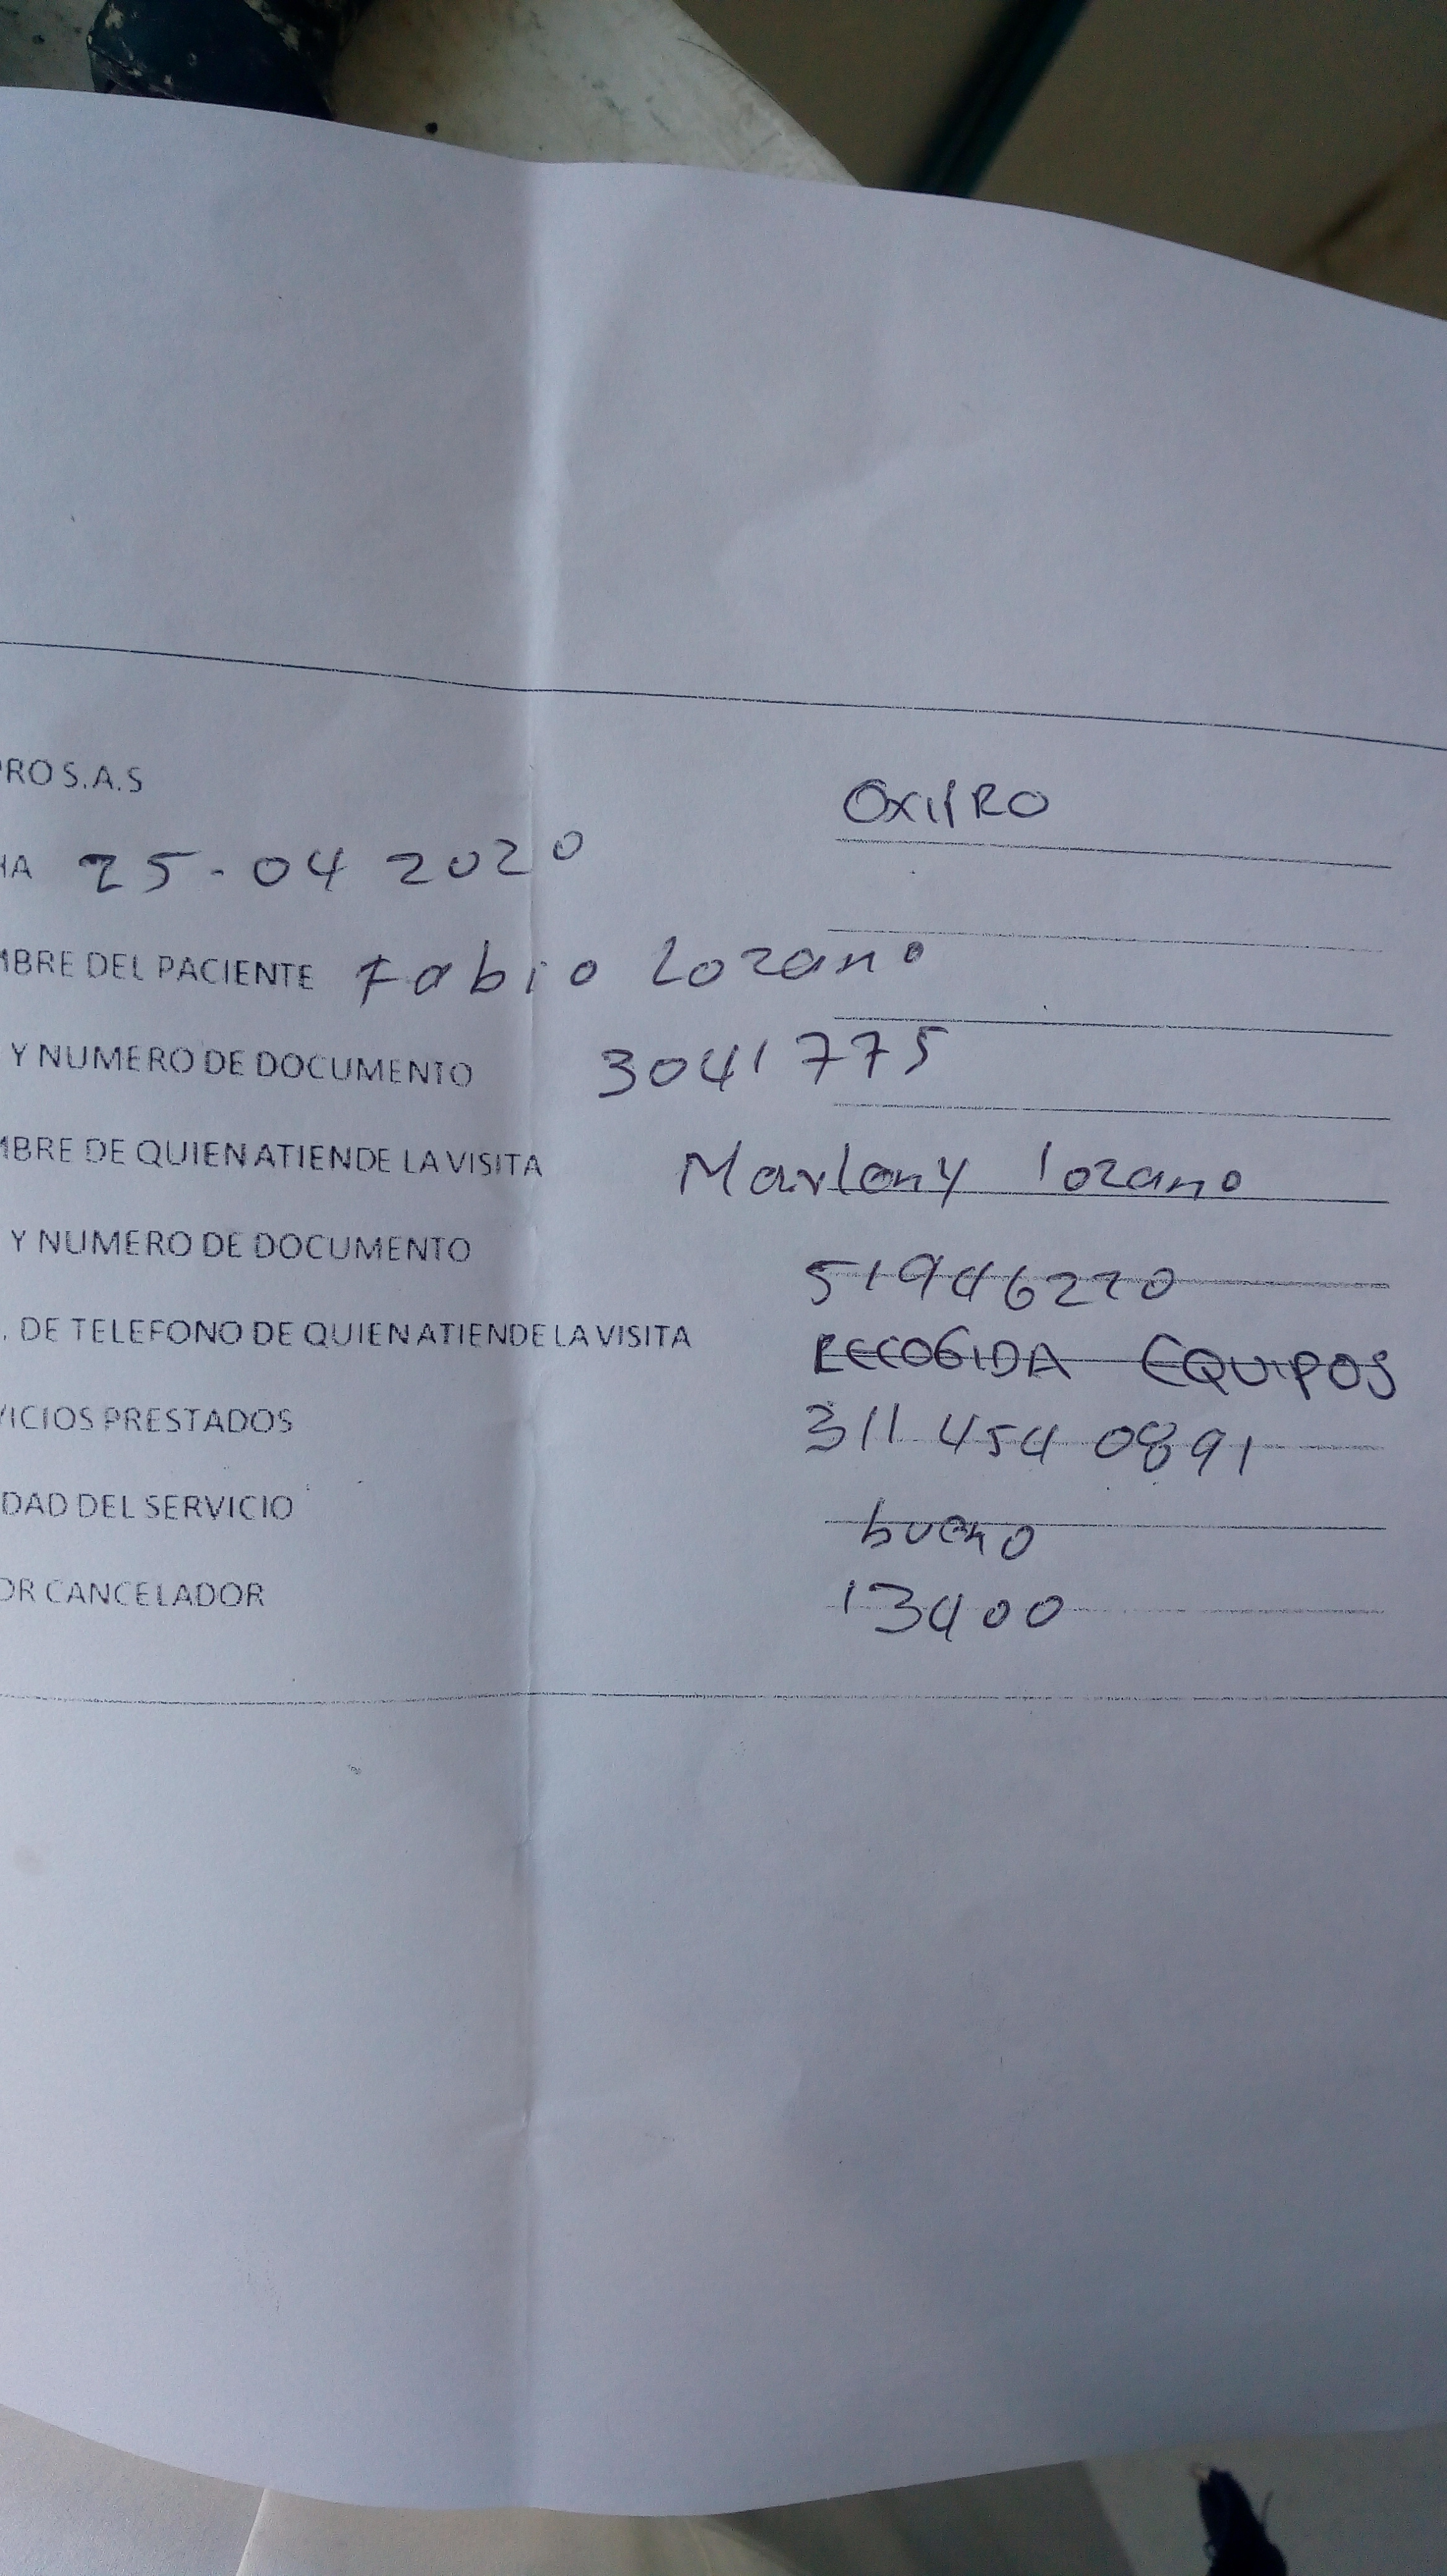 PRO S.A.S OXIPRO
HA 25-04 2020
MBRE DEL PACIENTE Fabio Lozano
Y NUMERO DE DOCUMENTO 3041775
MBRE DE QUIEN ATIENDE LA VISITA Marlony lozano
Y NUMERO DE DOCUMENTO 51946220
. DE TELEFONO DE QUIEN ATIENDE LA VISITA RECOGIDA EQUIPOS
VICIOS PRESTADOS 311 454 0891
DAD DEL SERVICIO bueno
OR CANCELADOR 13400